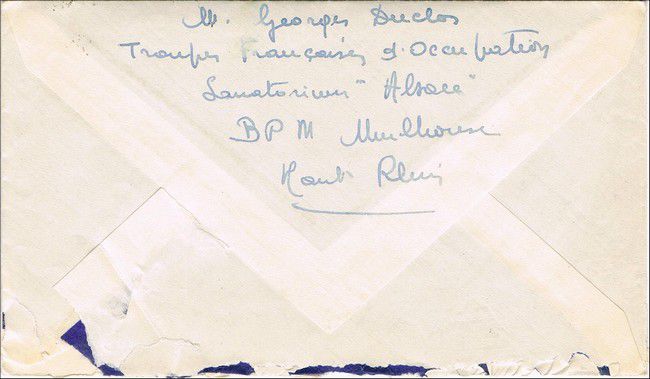 M. Georges Duclos
Troupes Françaises d'Occupation
Sanatorium "Alsace"
BPM Mulhouse
Haut Rhin